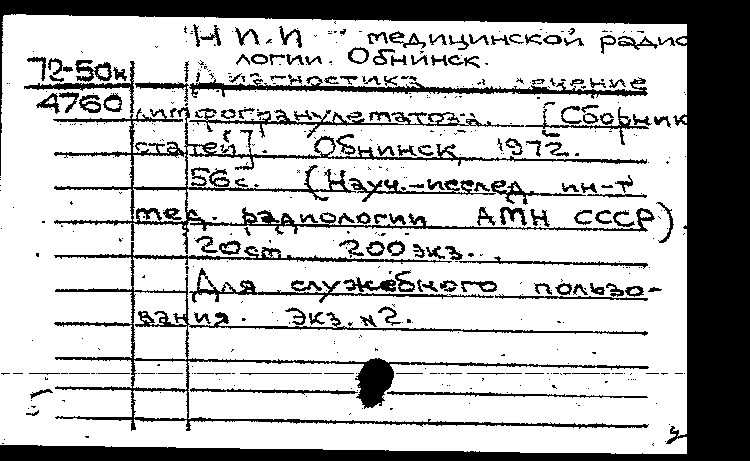 НИИ медицинской радио
логии. Обнинск.
72-50к
Диагностика и лечение
4760
лимфогранулематоза. [Сборник
статей]. Обнинск, 1972.
56с. (Науч.-исслед. ин-т
мед. радиологии АМН СССР).
20см. 200 экз.
Для служебного пользо-
вания. Экз. №2.